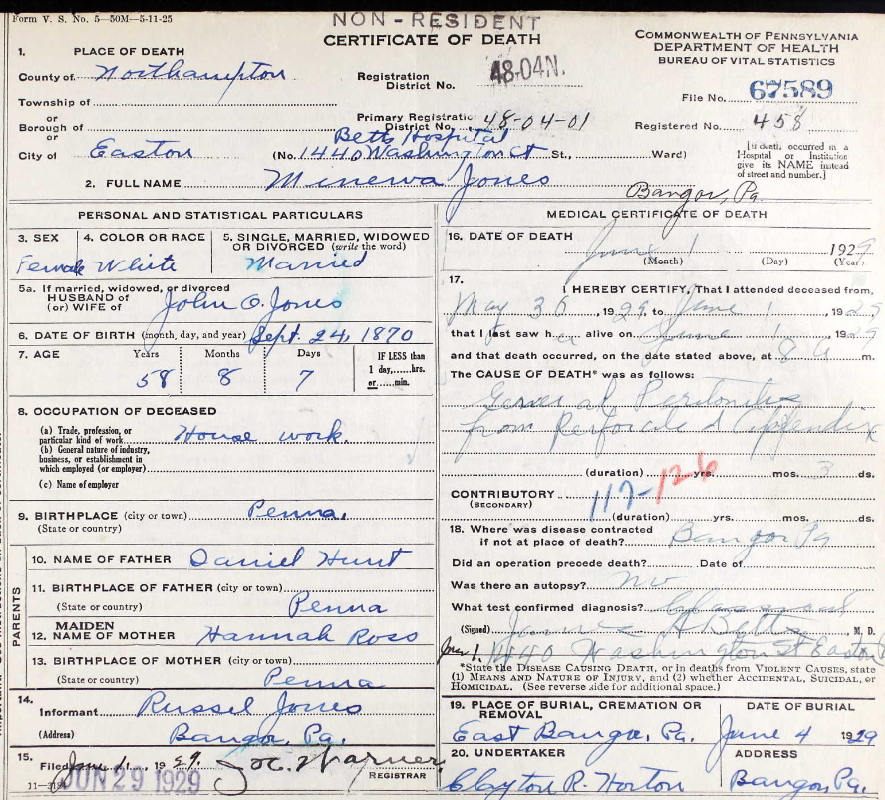 Form V. S. No. 5—50M—5-11-25
NON-RESIDENT
CERTIFICATE OF DEATH
COMMONWEALTH OF PENNSYLVANIA
DEPARTMENT OF HEALTH
BUREAU OF VITAL STATISTICS
1. PLACE OF DEATH
County of Northampton
Registration District No. 48-04N.
File No. 67589
Township of
or
Borough of
Primary Registratio District No. 48-04-01
Registered No. 458
or
Betts Hospital
City of Easton (No. 1440 Washington St St., Ward)
[If death occurred in a Hospital or Institution give its NAME instead of street and number.]
2. FULL NAME Minerva Jones
Bangor, Pa.
PERSONAL AND STATISTICAL PARTICULARS
3. SEX Female
4. COLOR OR RACE White
5. SINGLE, MARRIED, WIDOWED OR DIVORCED (write the word) Married
5a. If married, widowed, or divorced
HUSBAND of
(or) WIFE of John O. Jones
6. DATE OF BIRTH (month, day, and year) Sept. 24, 1870
7. AGE Years Months Days IF LESS than 1 day,......hrs. or......min.
58 8 7
8. OCCUPATION OF DECEASED
(a) Trade, profession, or particular kind of work House work.
(b) General nature of industry, business, or establishment in which employed (or employer)
(c) Name of employer
9. BIRTHPLACE (city or town) Penna.
(State or country)
PARENTS
10. NAME OF FATHER Daniel Hunt
11. BIRTHPLACE OF FATHER (city or town)
(State or country) Penna
12. MAIDEN NAME OF MOTHER Hannah Ross
13. BIRTHPLACE OF MOTHER (city or town)
(State or country) Penna
14.
Informant Russel Jones
(Address) Bangor, Pa.
15.
Filed June 1, 1929.
REGISTRAR
JUN 29 1929
MEDICAL CERTIFICATE OF DEATH
16. DATE OF DEATH June 1 1929
(Month) (Day) (Year)
17. I HEREBY CERTIFY, That I attended deceased from
May 30, 1929, to June 1, 1929
that I last saw her alive on June 1, 1929
and that death occurred, on the date stated above, at 9 a m.
The CAUSE OF DEATH* was as follows:
General Peritonitis
from Perforated Appendix
(duration) yrs. mos. 3 ds.
117-12-6
CONTRIBUTORY
(SECONDARY)
(duration) yrs. mos. ds.
18. Where was disease contracted
if not at place of death? Bangor Pa
Did an operation precede death? Date of
Was there an autopsy? no
What test confirmed diagnosis?
(Signed) James A Betts, M. D.
June 1. 1440 Washington St Easton
*State the DISEASE CAUSING DEATH, or in deaths from VIOLENT CAUSES, state
(1) MEANS AND NATURE OF INJURY, and (2) whether ACCIDENTAL, SUICIDAL, or
HOMICIDAL. (See reverse side for additional space.)
19. PLACE OF BURIAL, CREMATION OR REMOVAL
East Bangor, Pa.
DATE OF BURIAL
June 4 1929
20. UNDERTAKER
Clayton R. Horton
ADDRESS
Bangor, Pa.